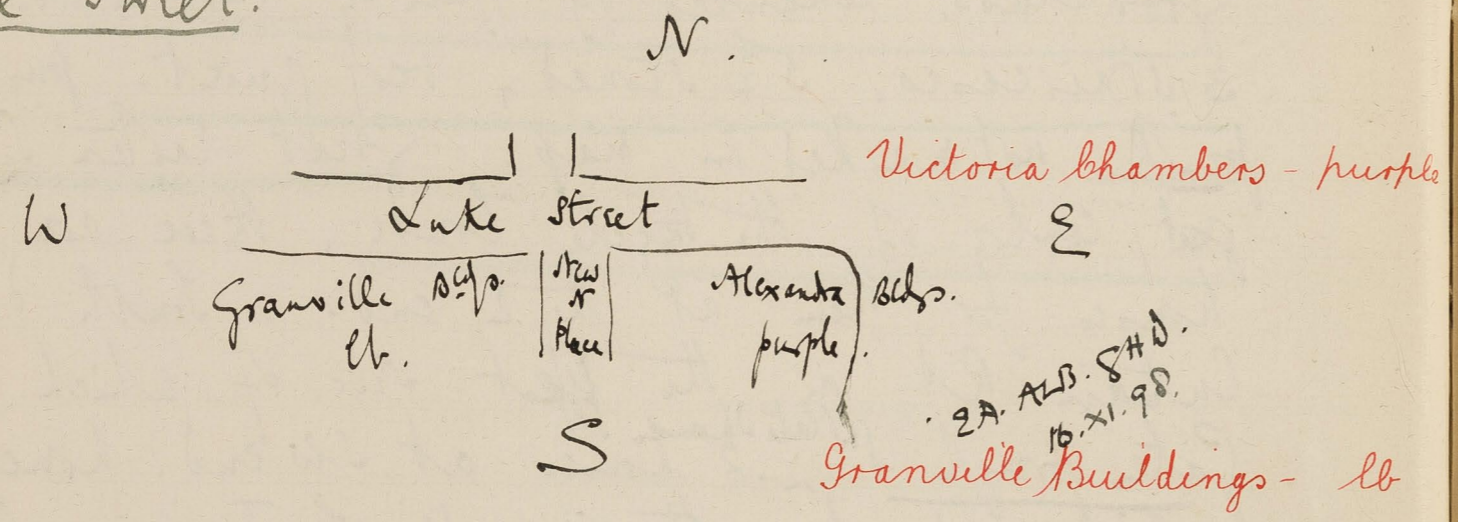 Street.
N.
Victoria Chambers - purple
W
Luke Street
E
Granville Bldgs. New Alexandra Bldgs.
N
lb. Place purple
2A. ALB. 8HD.
16.XI.98.
S
Granville Buildings - lb